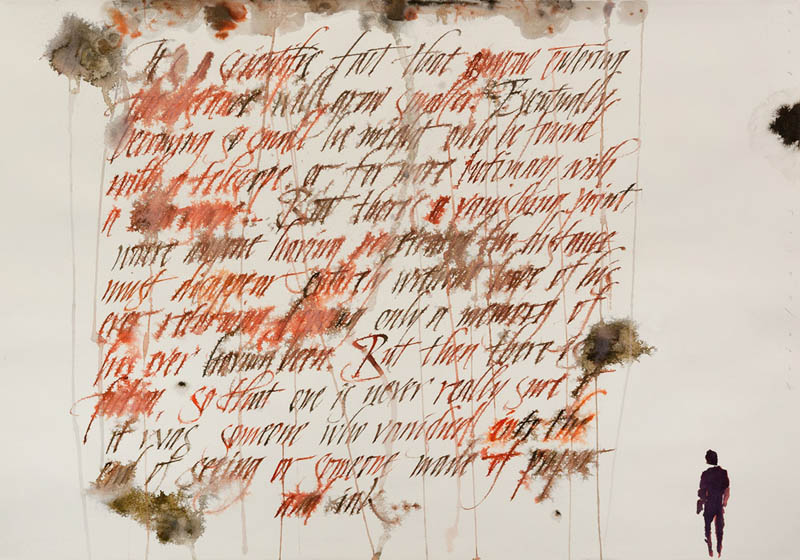 It is a scientific fact that anyone entering
the distance will grow smaller. Eventually
becoming so small he might only be found
with a telescope, or for more intimacy with
a But there's a vanishing point,
where anyone having the distance
must disappear entirely without hope of his
ever returning leaving only a memory of
his ever having been. But then there is
fiction, so that one is never really sure if
it was someone who vanished into the
end of seeing or someone made of paper
and ink